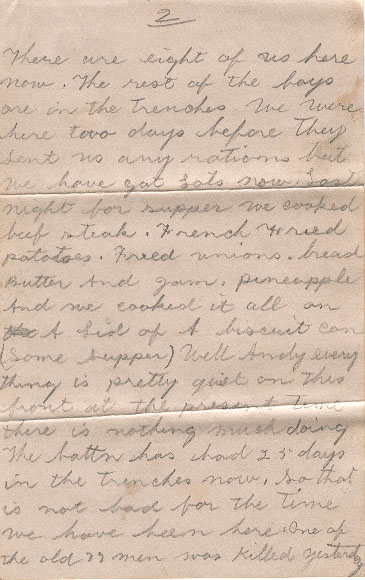 2
There are eight of us here
now. The rest of the boys
are in the trenches. We were
here two days before they
sent us any rations but
we have got lots now. Last
night for supper we cooked
beef steak. French Fried
patatoes. Fried unions. bread
Butter And gam. pineapple
And we cooked it all on
the A Lid of A biscuit can
(Some Supper) Well Andy every
thing is pretty quiet on this
front at the present time
there is nothing much doing
The battn has had 25 days
in the trenches now, so that
is not bad for the time
we have been here. One of
the old 79 men was killed yesterday